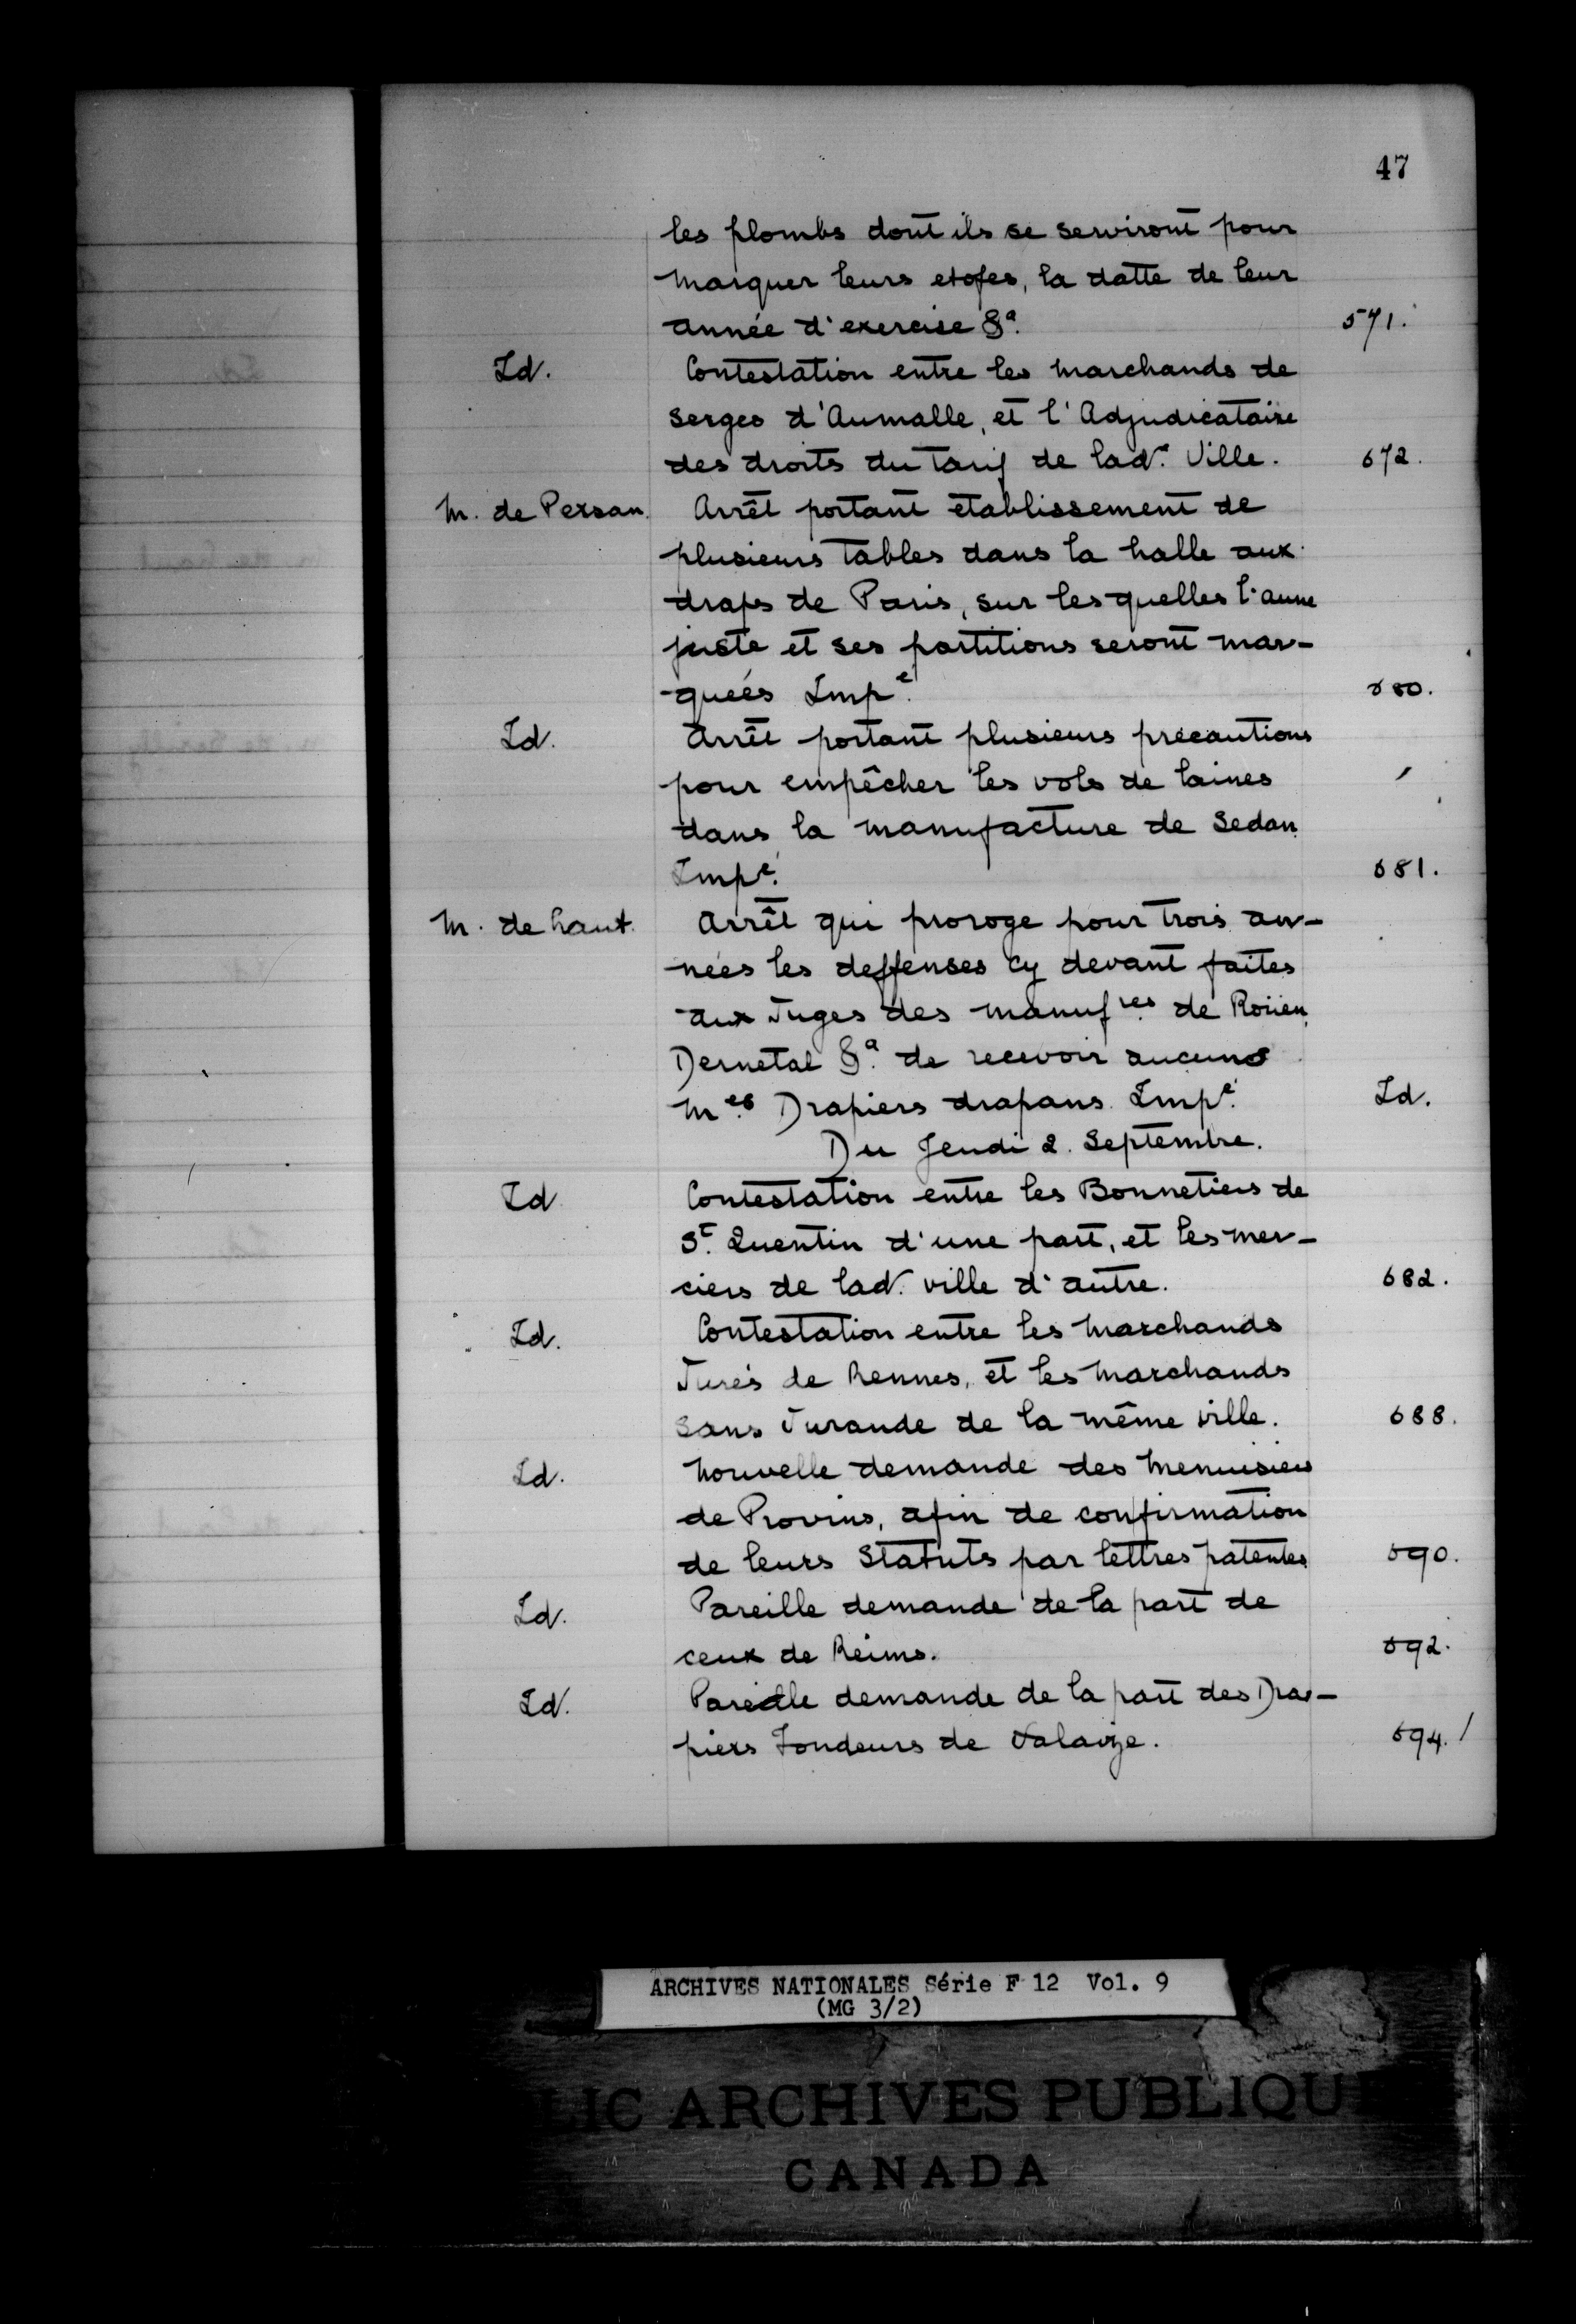 47
les plombs dont ils se serviront pour
marquer leurs etofes, la datte de leur
année d'exercise &a. 571.
Id. Contestation entre les marchands de
serges d'Aumalle, et l'Adjudicataire
des droits du tarif de lade. Ville. 672.
M. de Persan. Arrêt portant etablissement de
plusieurs tables dans la halle aux
draps de Paris, sur lesquelles l'aune
juste et ses partitions seront mar-
quées Impé. 680.
Id. Arrêt portant plusieurs precautions
pour empêcher les vols de laines
dans la manufacture de Sedan.
Impé. 681.
M. de haut. Arrêt qui proroge pour trois an-
nées les deffenses cy devant faites
aux Juges des manufres. de Roüen,
Dernetal &a. de recevoir aucuns
Mes. Drapiers drapans. Impé. Id.
Du Jeudi 2. Septembre.
Id Contestation entre les Bonnetiers de
St. Quentin d'une part, et les mer-
ciers de lad. ville d'autre. 682.
Id. Contestation entre les marchands
Jurés de Rennes, et les marchands
sans Jurande de la même ville. 688.
Id. Nouvelle demande des menuisiers
de Provins, afin de confirmation
de leurs Statuts par lettres patentes. 690.
Id. Pareille demande de la part de
ceux de Reims. 692.
Id. Pareille demande de la part des Dra-
piers Tondeurs de Falaize. 694. /
ARCHIVES NATIONALES Série F 12 Vol. 9
(MG 3/2)
LIC ARCHIVES PUBLIQU
CANADA